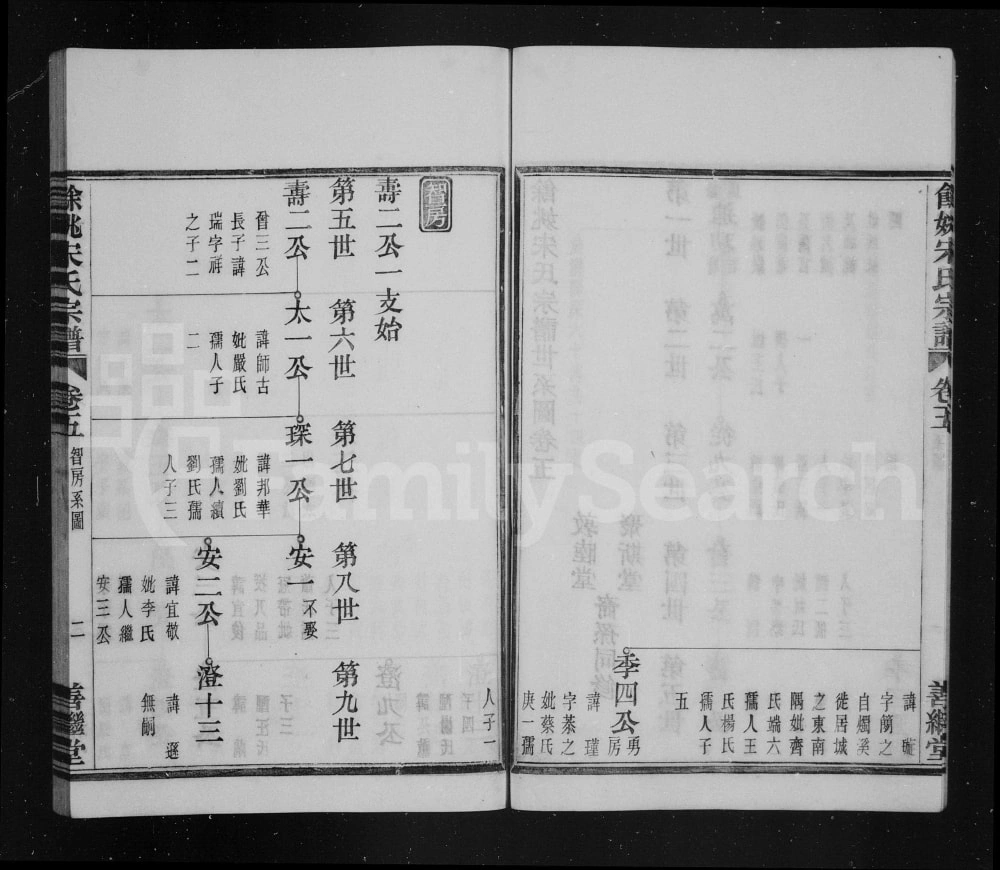 餘姚宋氏宗譜
卷五
善繼堂
諱 璇
字簡之
自燭溪
徙居城
之東南
隅妣齊
氏端六
孺人王
氏楊氏
孺人子
五
季四公 勇房
諱 瑾
字茶之
妣蔡氏
庚一孺
人子一
智房
壽二公一支始
第五世 第六世 第七世 第八世 第九世
壽二公 太一公 琛一公 安一 不娶
曾三公
長子諱
瑞字祥
之子二
諱師古
妣嚴氏
孺人子
二
諱邦華
妣劉氏
孺人續
劉氏孺
人子三
安二公 澄十三
諱宜敬
妣李氏
孺人繼
安三公
諱 遜
無嗣
餘姚宋氏宗譜
卷五
智房系圖
二
善繼堂
FamilySearch